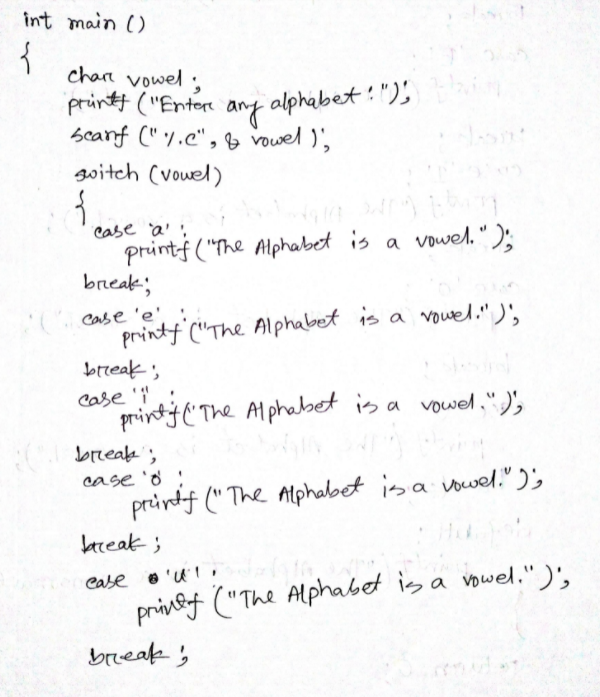 int main ()
{
char vowel ;
printf ("Enter any alphabet :");
scanf ("%c", & vowel );
switch (vowel)
{
case 'a' :
printf ("The Alphabet is a vowel.");
break;
case 'e' :
printf ("The Alphabet is a vowel.");
break ;
case 'i' :
printf ("The Alphabet is a vowel.");
break ;
case 'o' :
printf ("The Alphabet is a vowel.");
break ;
case 'u' :
printf ("The Alphabet is a vowel.");
break ;